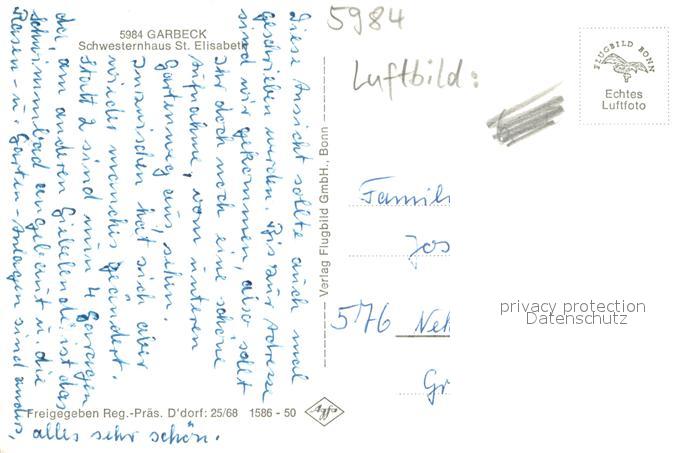 5984 GARBECK
Schwesternhaus St. Elisabeth
Diese Ansicht sollte auch mal
geschrieben werden. Bis zur Adresse
sind wir gekommen, also sollt
Ihr doch noch eine schöne
Aufnahme, vom unteren
Gartenweg aus, sehen.
Inzwischen hat sich aber
wieder manches geändert.
Statt 2 sind nun 4 Garagen
da, am anderen Giebelende ist das
Schwimmbad angebaut u. die
Rasen- u. Garten-Anlagen sind anders,
alles sehr schön.
Freigegeben Reg.-Präs. D'dorf: 25/68 1586 - 50
Agfa
Verlag Flugbild GmbH., Bonn
5984
Luftbild:
FLUGBILD BONN
Echtes
Luftfoto
Famil
Jos
576 Neh
Gr
privacy protection
Datenschutz